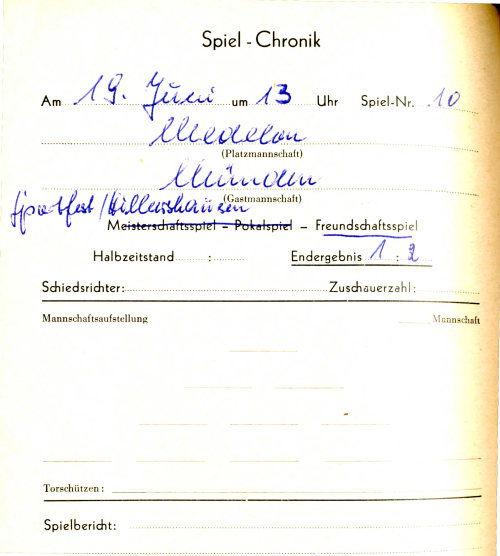 Spiel-Chronik
Am 19. Juni um 13 Uhr Spiel-Nr. 10
Medelon
(Platzmannschaft)
Münden
(Gastmannschaft)
Sportfest / Hillershausen
Meisterschaftsspiel – Pokalspiel – Freundschaftsspiel
Halbzeitstand : Endergebnis 1 : 2
Schiedsrichter: Zuschauerzahl:
Mannschaftsaufstellung Mannschaft
Torschützen:
Spielbericht: